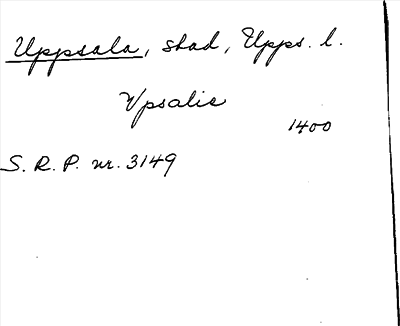 Uppsala, stad, Upps. l.
Vpsalis
1400
S. R. P. nr. 3149